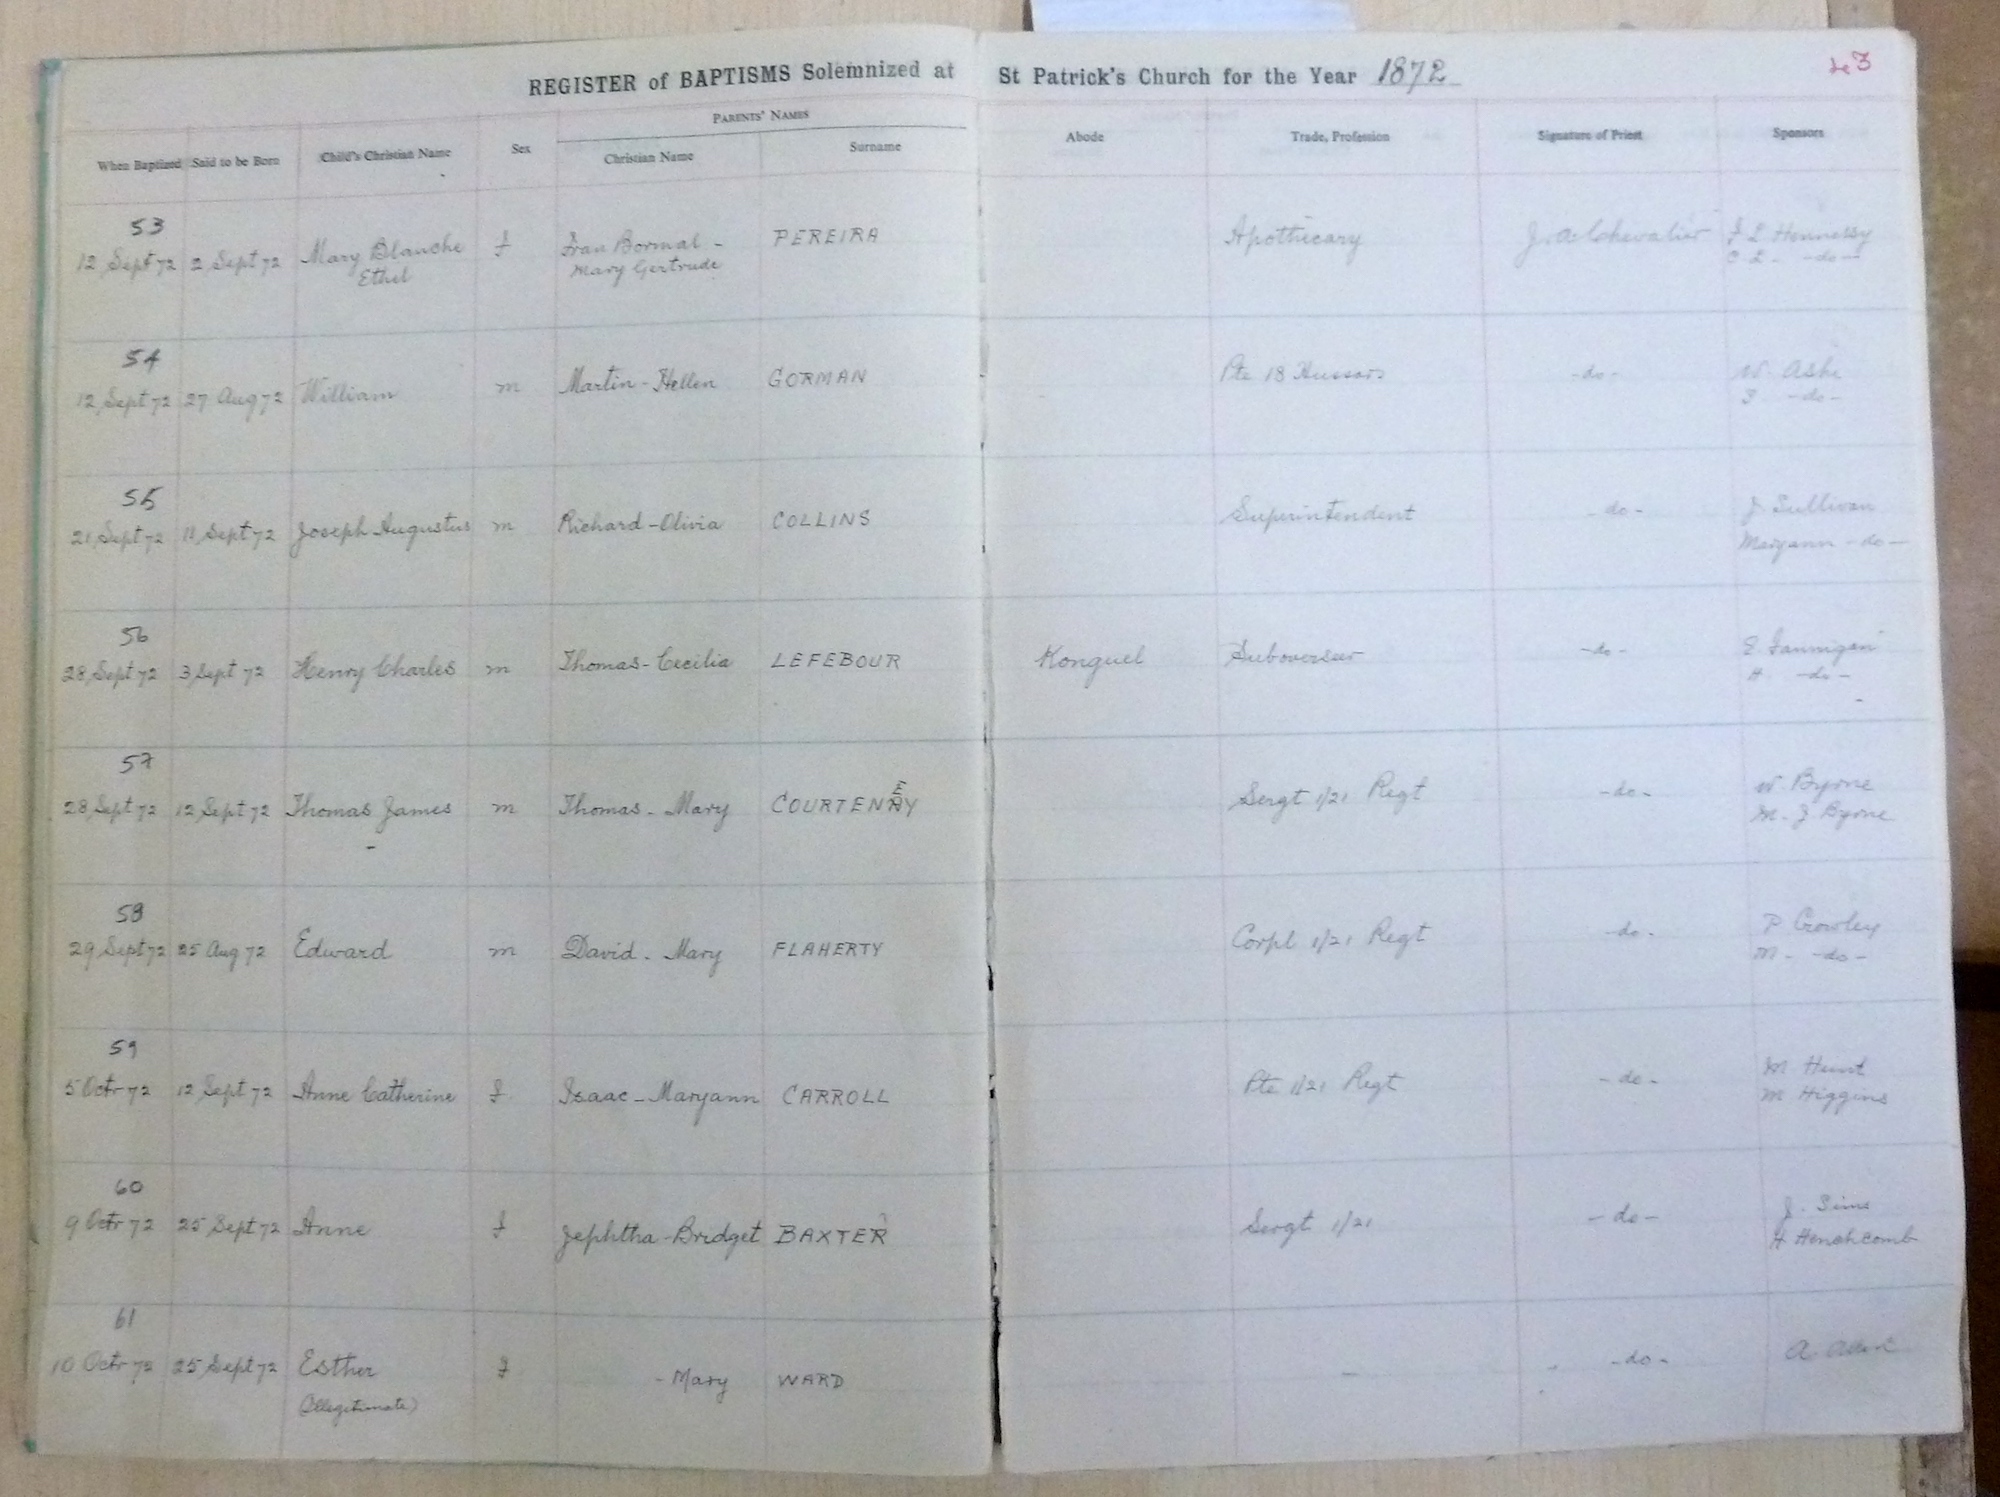 REGISTER of BAPTISMS Solemnized at St Patrick's Church for the Year 1872
43
PARENTS' NAMES
When Baptized Said to be Born Child's Christian Name Sex Christian Name Surname Abode Trade, Profession Signature of Priest Sponsors
53
12 Sept 72 2 Sept 72 Mary Blanche f Fran Bormal - PEREIRA Apothecary J. A. Chevalier F L Hennessy
Ethel Mary Gertrude C L - -do-
54
12 Sept 72 27 Aug 72 William m Martin - Hellen GORMAN Pte 18 Hussars -do- W. Ashe
-do-
55
21 Sept 72 11 Sept 72 Joseph Augustus m Richard - Olivia COLLINS Superintendent -do- J Sullivan
Maryann -do-
56
28 Sept 72 3 Sept 72 Henry Charles m Thomas - Cecilia LEFEBOUR Konguel Suboverseer -do- E. Fannigan
H -do-
57
28 Sept 72 12 Sept 72 Thomas James m Thomas - Mary COURTENAY Sergt 1/21 Regt -do- W Byrne
E
M. J Byrne
58
29 Sept 72 25 Aug 72 Edward m David - Mary FLAHERTY Corpl 1/21 Regt -do- P Crowley
M - -do-
59
5 Octr 72 12 Sept 72 Anne Catherine f Isaac - Maryann CARROLL Pte 1/21 Regt -do- M Hunt
M Higgins
60
9 Octr 72 25 Sept 72 Anne f Jephtha - Bridget BAXTER Sergt 1/21 -do- J. Sims
H Henchcomb
61
10 Octr 72 25 Sept 72 Esther f - Mary WARD - -do- A
(Illegitimate)